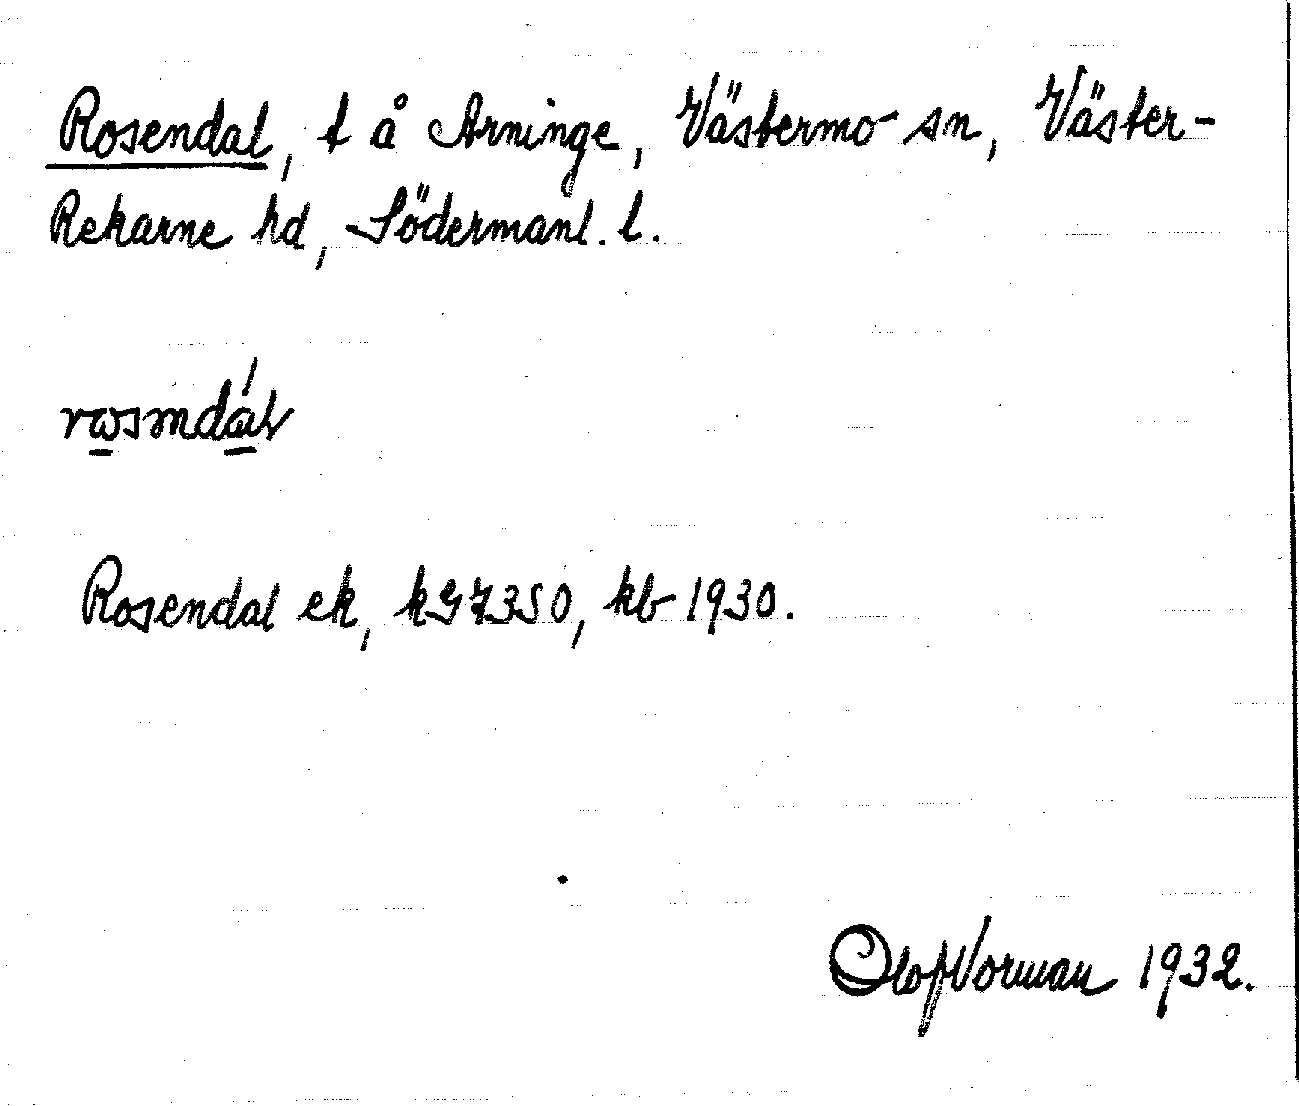 Rosendal, t å Arninge, Västermo sn, Väster-
Rekarne hd, Södermanl. l.
Rosendal ek, k97350, kb 1930.
Olof Norman 1932.